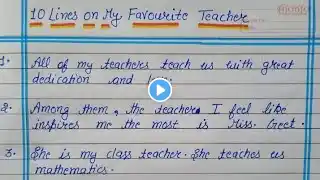 10 Lines on My Favourite Teacher
1. All of my teachers teach us with great
dedication and
2. Among them, the teacher I feel like
inspires me the most is Miss. Geet.
3. She is my class teacher. She teaches us
mathematics.